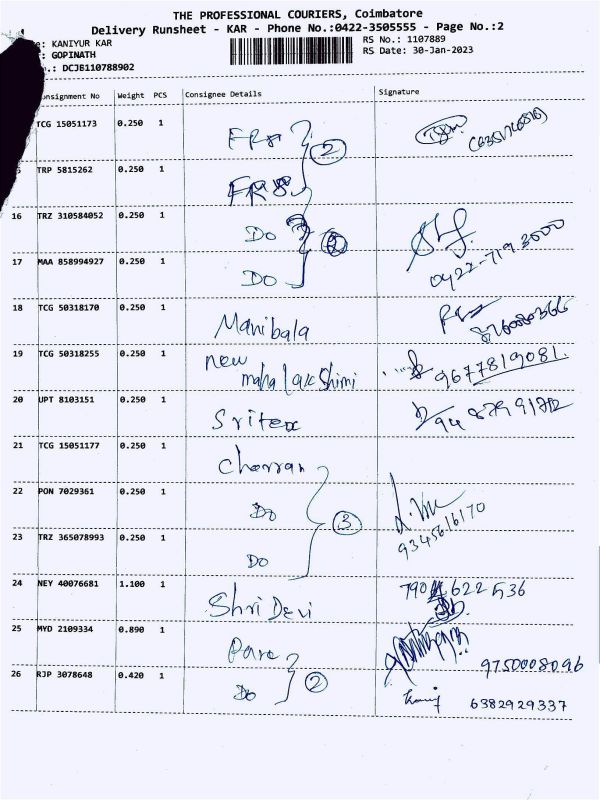 THE PROFESSIONAL COURIERS, Coimbatore
Delivery Runsheet - KAR - Phone No.:0422-3505555 - Page No.:2
: KANIYUR KAR
RS No.: 1107889
: GOPINATH
RS Date: 30-Jan-2023
.: DCJ6110788902
onsignment No Weight PCS Consignee Details Signature
TCG 15051173 0.250 1
2
TRP 5815262 0.250 1
16 TRZ 310584052 0.250 1 Do
17 MAA 858994927 0.250 1 Do 0422-719 3000
18 TCG 50318170 0.250 1 Manibala
19 TCG 50318255 0.250 1 New maha lakshimi 9677819081.
20 UPT 8103151 0.250 1 Sritex
21 TCG 15051177 0.250 1 Cherran
22 PON 7029361 0.250 1 Do 3
23 TRZ 365078993 0.250 1 Do 9345616170
24 NEY 40076681 1.100 1 Shri Devi
25 MYD 2109334 0.890 1 9750008096
26 RJP 3078648 0.420 1 Do 2 6382929337